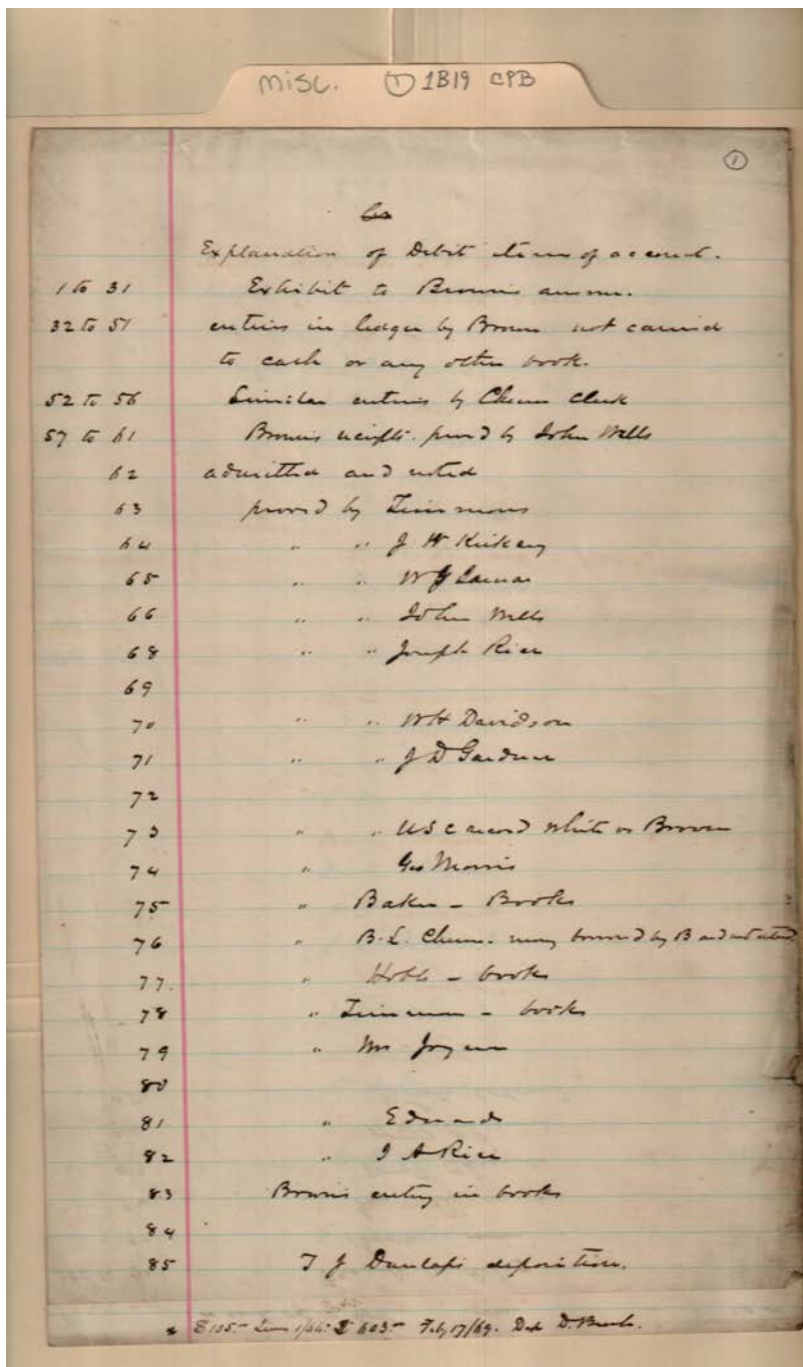 misc. ① 1B19 CPB
①
Explanation of Debit items of account.
1 to 31 Exhibit to Browns answer.
32 to 51 entries in ledger by Brown not carried
to cash or any other book.
52 to 56 Similar entries by Chunn Clerk
57 to 61 Browns receipts. proved by John Wells
62 admitted and noted
63 proved by Timmons
64 " " J W
65 " " W J Lamar
66 " " John Wells
68 " " Joseph Rice
69
70 " " W H Davidson
71 " " J D Gardner
72
73 " " U S C record White vs Brown
74 " Geo Morris
75 " Baker - Books
76 " B. L. Chunn. money borrowed by B and not
77. " Hobbs - books
78 " Timmons - books
79 " Mrs
80
81 " Edwards
82 " J A Rice
83 Browns entry in books
84
85 T J Dunlaps deposition.
$105.– June 603.– Feby 17/69. D.